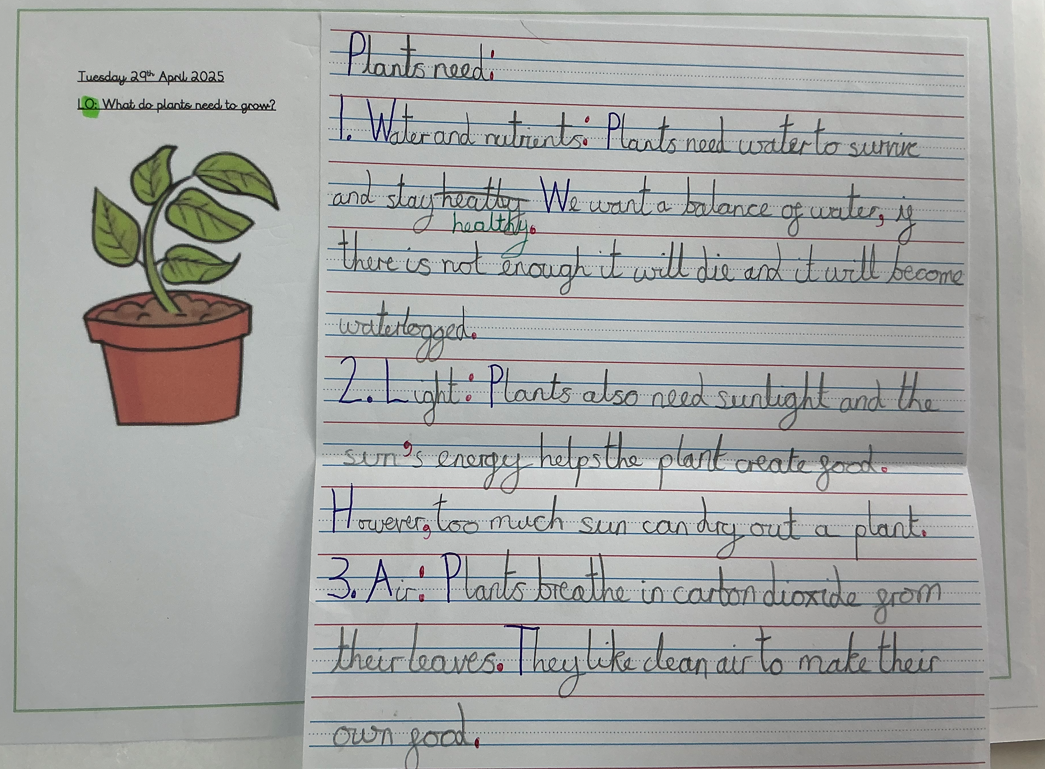 Tuesday 29th April 2025
LO: What do plants need to grow?
Plants need:
1. Water and nutrients: Plants need water to survive
and stay heatty We want a balance of water, if
healthy.
there is not enough it will die and it will become
waterlogged.
2. Light: Plants also need sunlight and the
sun's energy helps the plant create food.
However, too much sun can dry out a plant.
3. Air: Plants breathe in carbon dioxide from
their leaves. They like clean air to make their
own food.